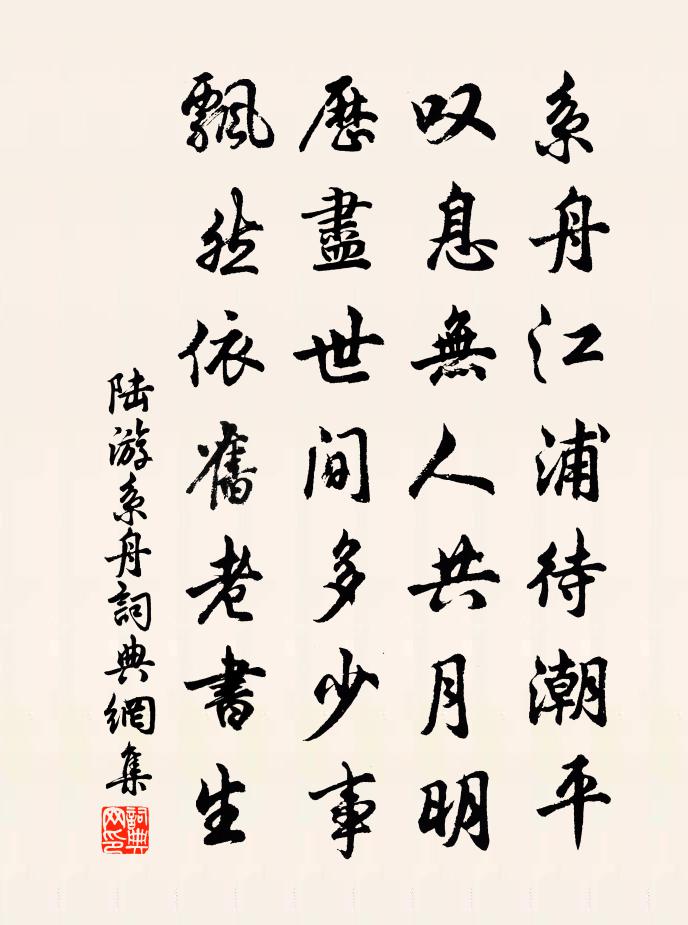 系舟江浦待潮平
叹息無人共月明
歷盡世間多少事
飄然依舊老書生
陆游系舟詞典網集
詞典網印